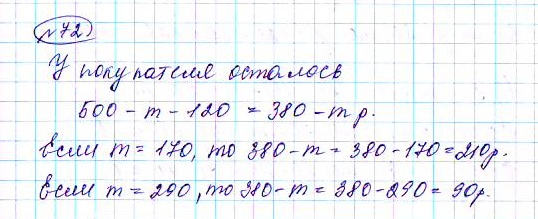 №72)
У покупателя осталось
500 - m - 120 = 380 - m р.
Если m = 170, то 380 - m = 380 - 170 = 210р.
Если m = 290, то 380 - m = 380 - 290 = 90р.